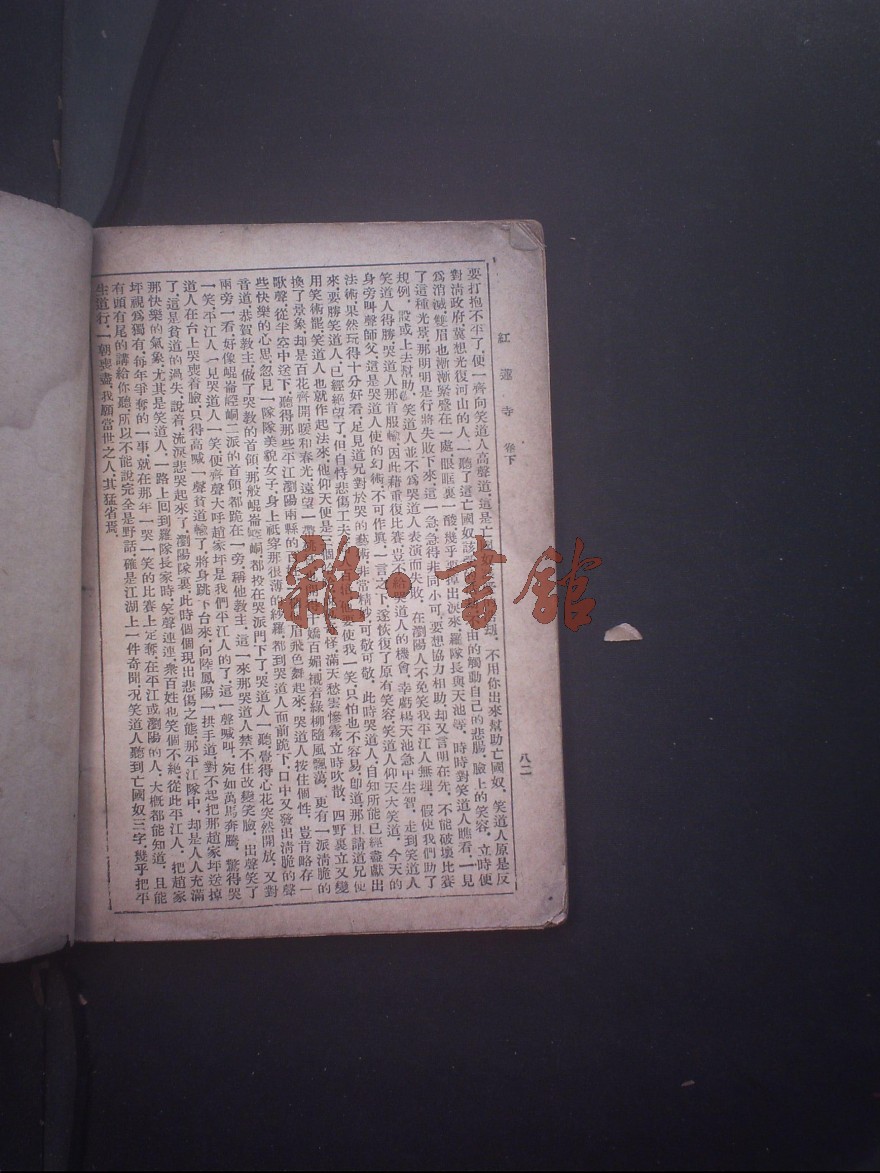 紅蓮寺 卷下 八二
要打抱不平了，便一齊向笑道人高聲道，這是亡國奴該 不用你出來幫助亡國奴，笑道人原是反
對清政府，冀想光復河山的人，一聽了這亡國奴該 由的觸動自己的悲腸，臉上的笑容，立時便
爲消滅，雙眉也漸漸緊蹙在一處，眼眶裏一酸，幾乎要掉出淚來，羅隊長與天池等，時時對笑道人瞧看，一見
了這種光景，那明明是行將失敗下來，這一急，急得非同小可，要想協力相助，却又言明在先，不能破壞比賽
規例，設或上去幫助，笑道人並不爲哭道人表演而失敗，在瀏陽人不免笑我平江人無理，假使我們助了
笑道人得勝，哭道人那肯服輸，因此藉重復比賽，豈不給哭道人的機會，幸虧楊天池急中生智，走到笑道人
身旁，叫聲師父，這是哭道人使的幻術，不可作真，一言之下，遂恢復了原有笑容，笑道人仰天大笑道，今天的
法術，果然玩得十分好看，足見道兄對於哭的藝術，非常精妙，可敬可敬，此時哭道人，自知所能已經盡獻出
來，要勝笑道人，已經絕望了，但自恃悲傷工夫 要使我一笑，只怕也不容易，卽道，那且請道兄便
用笑術罷，笑道人也就作起法來，他仰天便是 怪，滿天愁雲慘霧，立時吹散，四野裏立又變
換了景象，却是百花齊開，暖和春光，遠望一灣 千嬌百媚，襯着綠柳隨風飄蕩，更有一派清脆的
歌聲，從半空中送下，聽得那些平江瀏陽兩縣的百 眉飛色舞起來，哭道人按住個性，豈肯略存一
些快樂的心思，忽見一隊隊美貌女子，身上祇穿那很薄的紗羅，都到哭道人面前跪下，口中又發出清脆的聲
音道，恭賀教主做了哭教的首領，那般崐崙崆峒都投在哭派門下了，哭道人一聽，覺得心花突然開放，又對
兩旁一看，好像崐崙崆峒二派的首領，都跪在一旁，稱他教主，這一來那哭道人禁不住改變笑臉，出聲笑了
一笑，平江人一見哭道人一笑，便齊聲大呼趙家坪是我們平江人的了，這一聲喊叫，宛如萬馬奔騰，驚得哭
道人在台上哭喪着臉，只得高喊一聲貧道輸了，將身跳下台來，向陸鳳陽一拱手道，對不起，把那趙家坪送掉
了，這是貧道的過失，說着，流淚悲哭起來了，瀏陽隊裏，此時個個現出悲傷之態，那平江隊中，却是人人充滿
那快樂的氣象，尤其是笑道人，一路上回到羅隊長家時，笑聲連連，衆百姓也笑個不絕，從此平江人，把趙家
坪視爲獨有，每年爭奪的一事，就在那年一哭一笑的比賽上定奪，在平江或瀏陽的人，大概都能知道，且能
有頭有尾的講給你聽，所以不能說完全是野話，確是江湖上一件奇聞，況笑道人聽到亡國奴三字，幾乎把平
生道行，一朝喪盡，我願當世之人，其猛省焉，
雜·書館